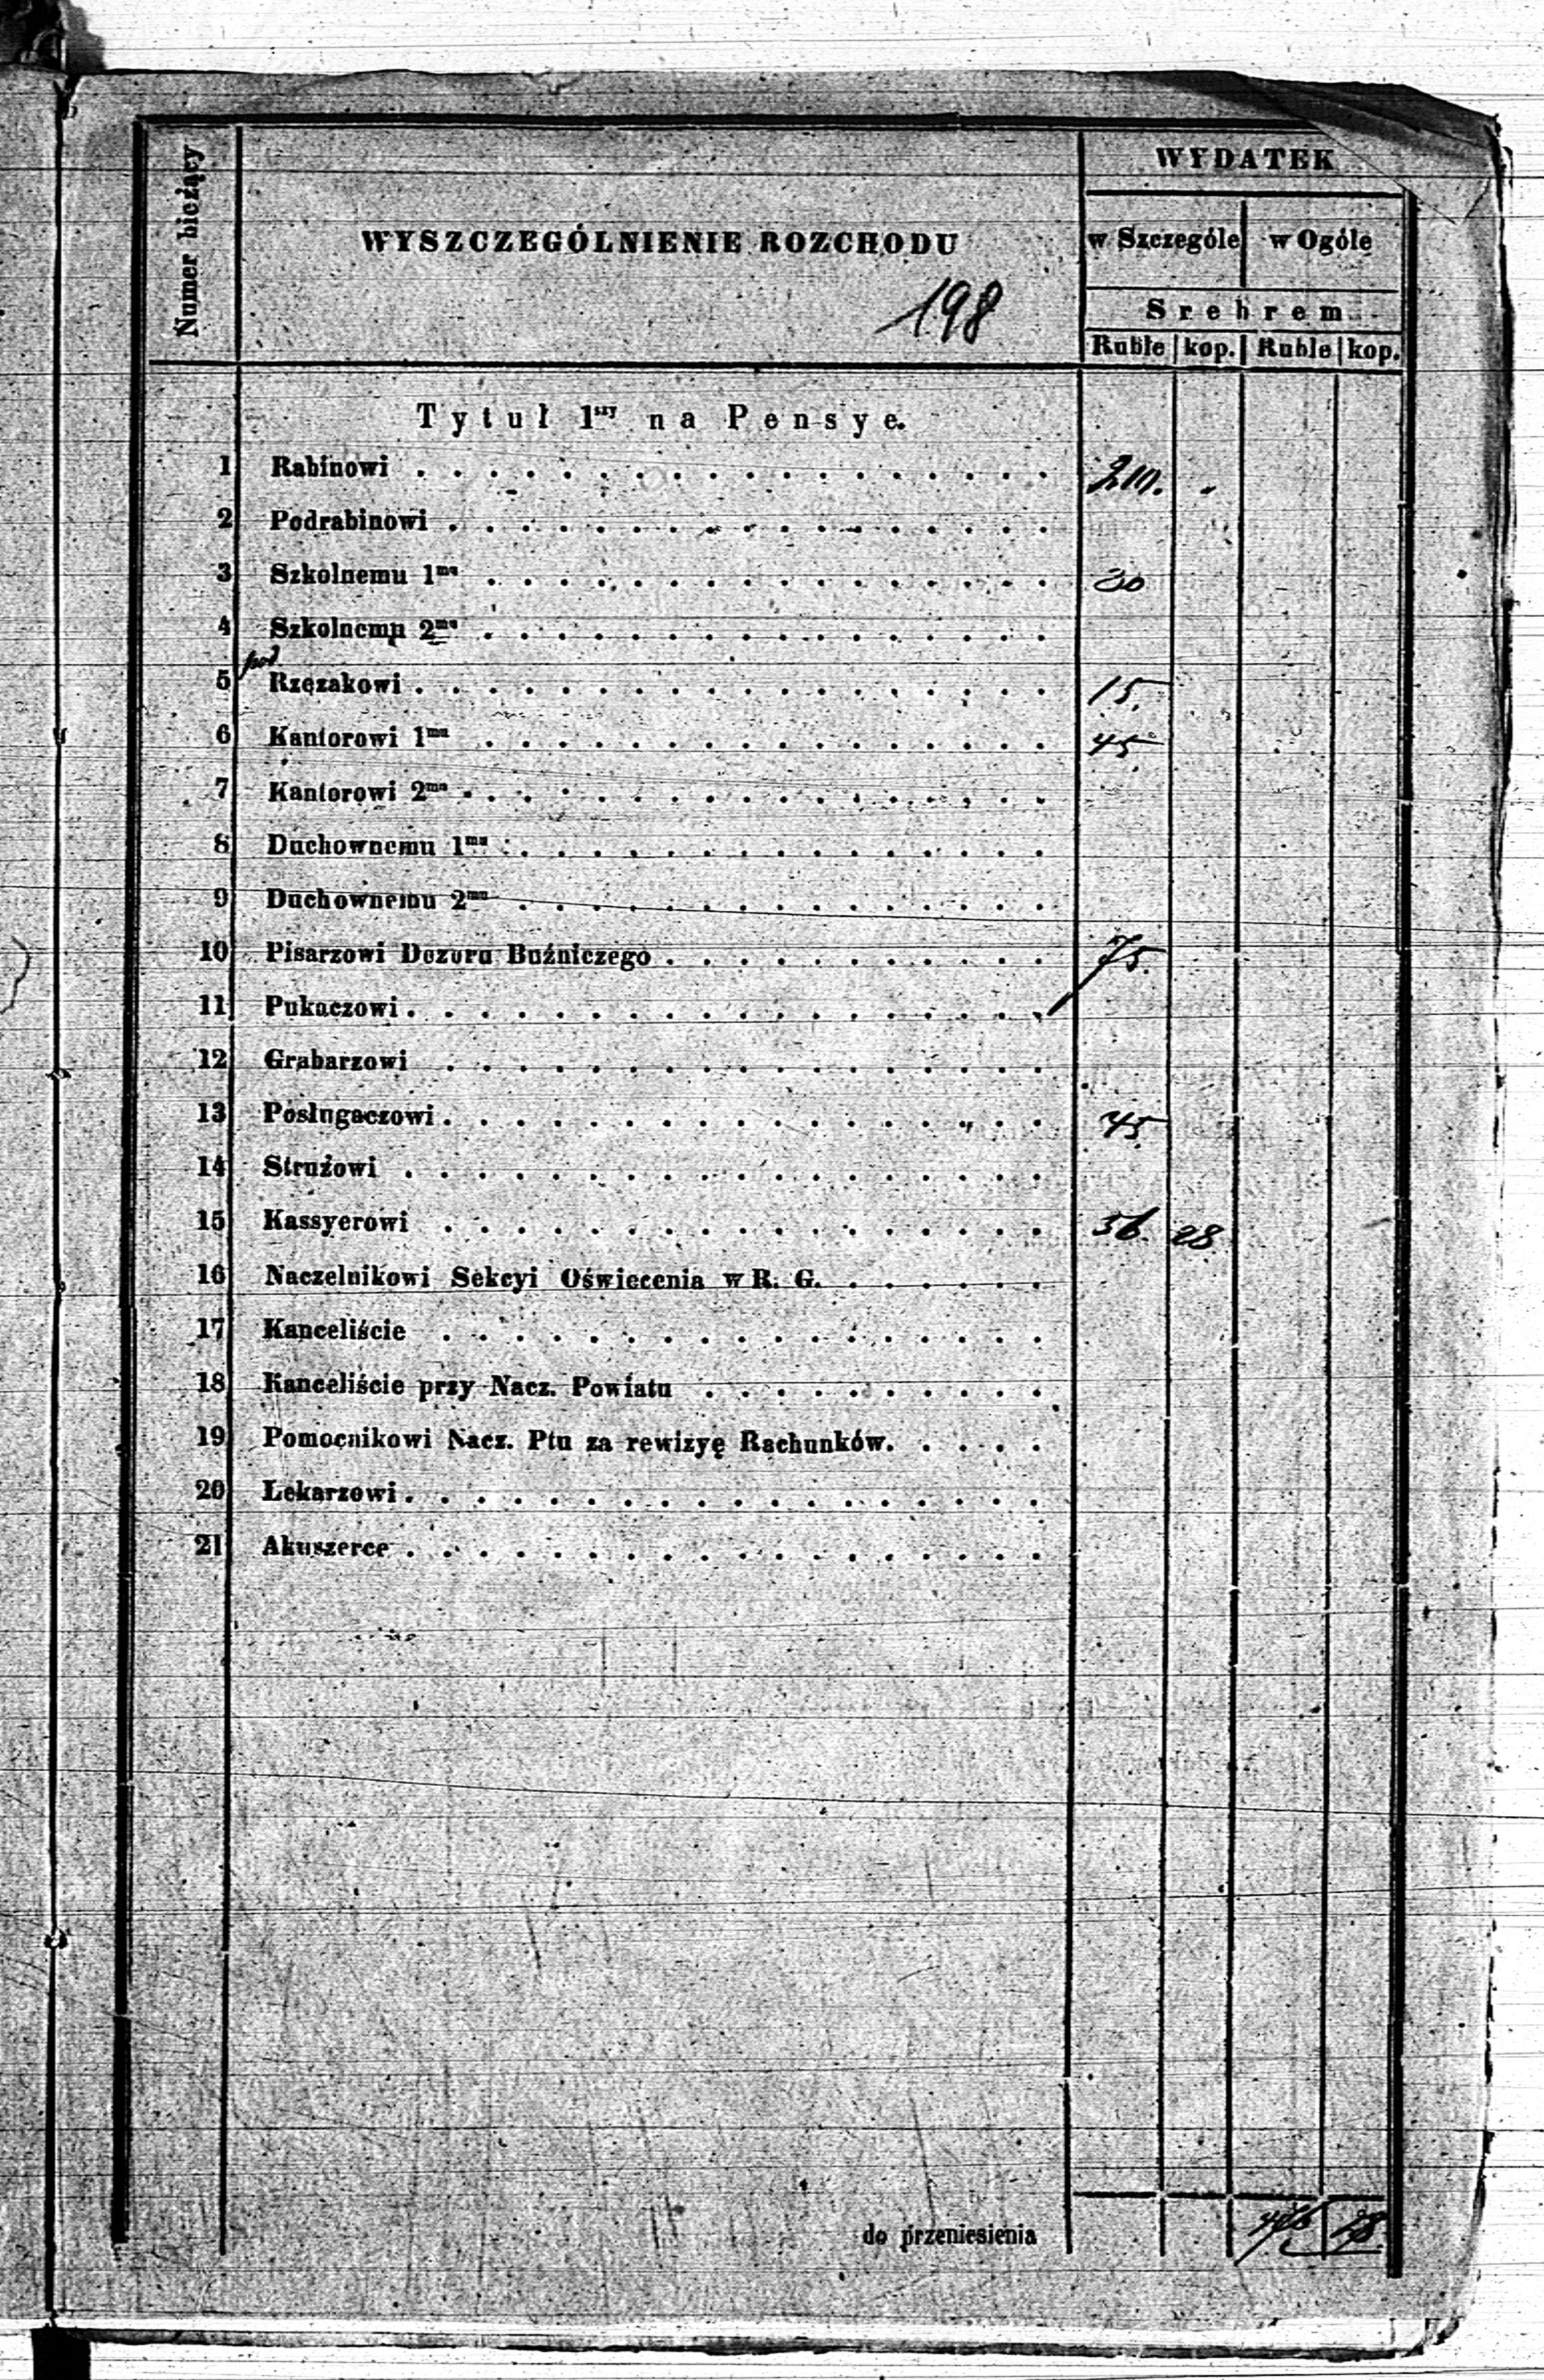 Numer bieżący
WYSZCZEGÓLNIENIE ROZCHODU
198
WYDATEK
w Szczególe w Ogóle
Srebrem
Ruble kop. Ruble kop.
Tytuł 1szy na Pensye.
1 Rabinowi . . . . . . . . . . . . . . . . . 210. "
2 Podrabinowi . . . . . . . . . . . . . . . . .
3 Szkolnemu 1mu . . . . . . . . . . . . . . . . 30
4 Szkolnemu 2mu . . . . . . . . . . . . . . . .
pod
5 Rzęzakowi . . . . . . . . . . . . . . . . . . 15.
6 Kantorowi 1mu . . . . . . . . . . . . . . . . 45.
7 Kantorowi 2mu . . . . . . . . . . . . . . . .
8 Duchownemu 1mu . . . . . . . . . . . . . . .
9 Duchownemu 2mu . . . . . . . . . . . . . . .
10 Pisarzowi Dozoru Bużniczego . . . . . . . . . . . 75.
11 Pukaczowi . . . . . . . . . . . . . . . . . .
12 Grabarzowi . . . . . . . . . . . . . . . . .
13 Posługaczowi . . . . . . . . . . . . . . . . . 45.
14 Strużowi . . . . . . . . . . . . . . . . . .
15 Kassyerowi . . . . . . . . . . . . . . . . . 56. 28
16 Naczelnikowi Sekcyi Oświecenia w R. G. . . . . . .
17 Kanceliście . . . . . . . . . . . . . . . . .
18 Kanceliście przy Nacz. Powiatu . . . . . . . . . .
19 Pomocnikowi Nacz. Ptu za rewizyę Rachunków. . . . .
20 Lekarzowi . . . . . . . . . . . . . . . . . .
21 Akuszerce . . . . . . . . . . . . . . . . . .
do przeniesienia 476 28